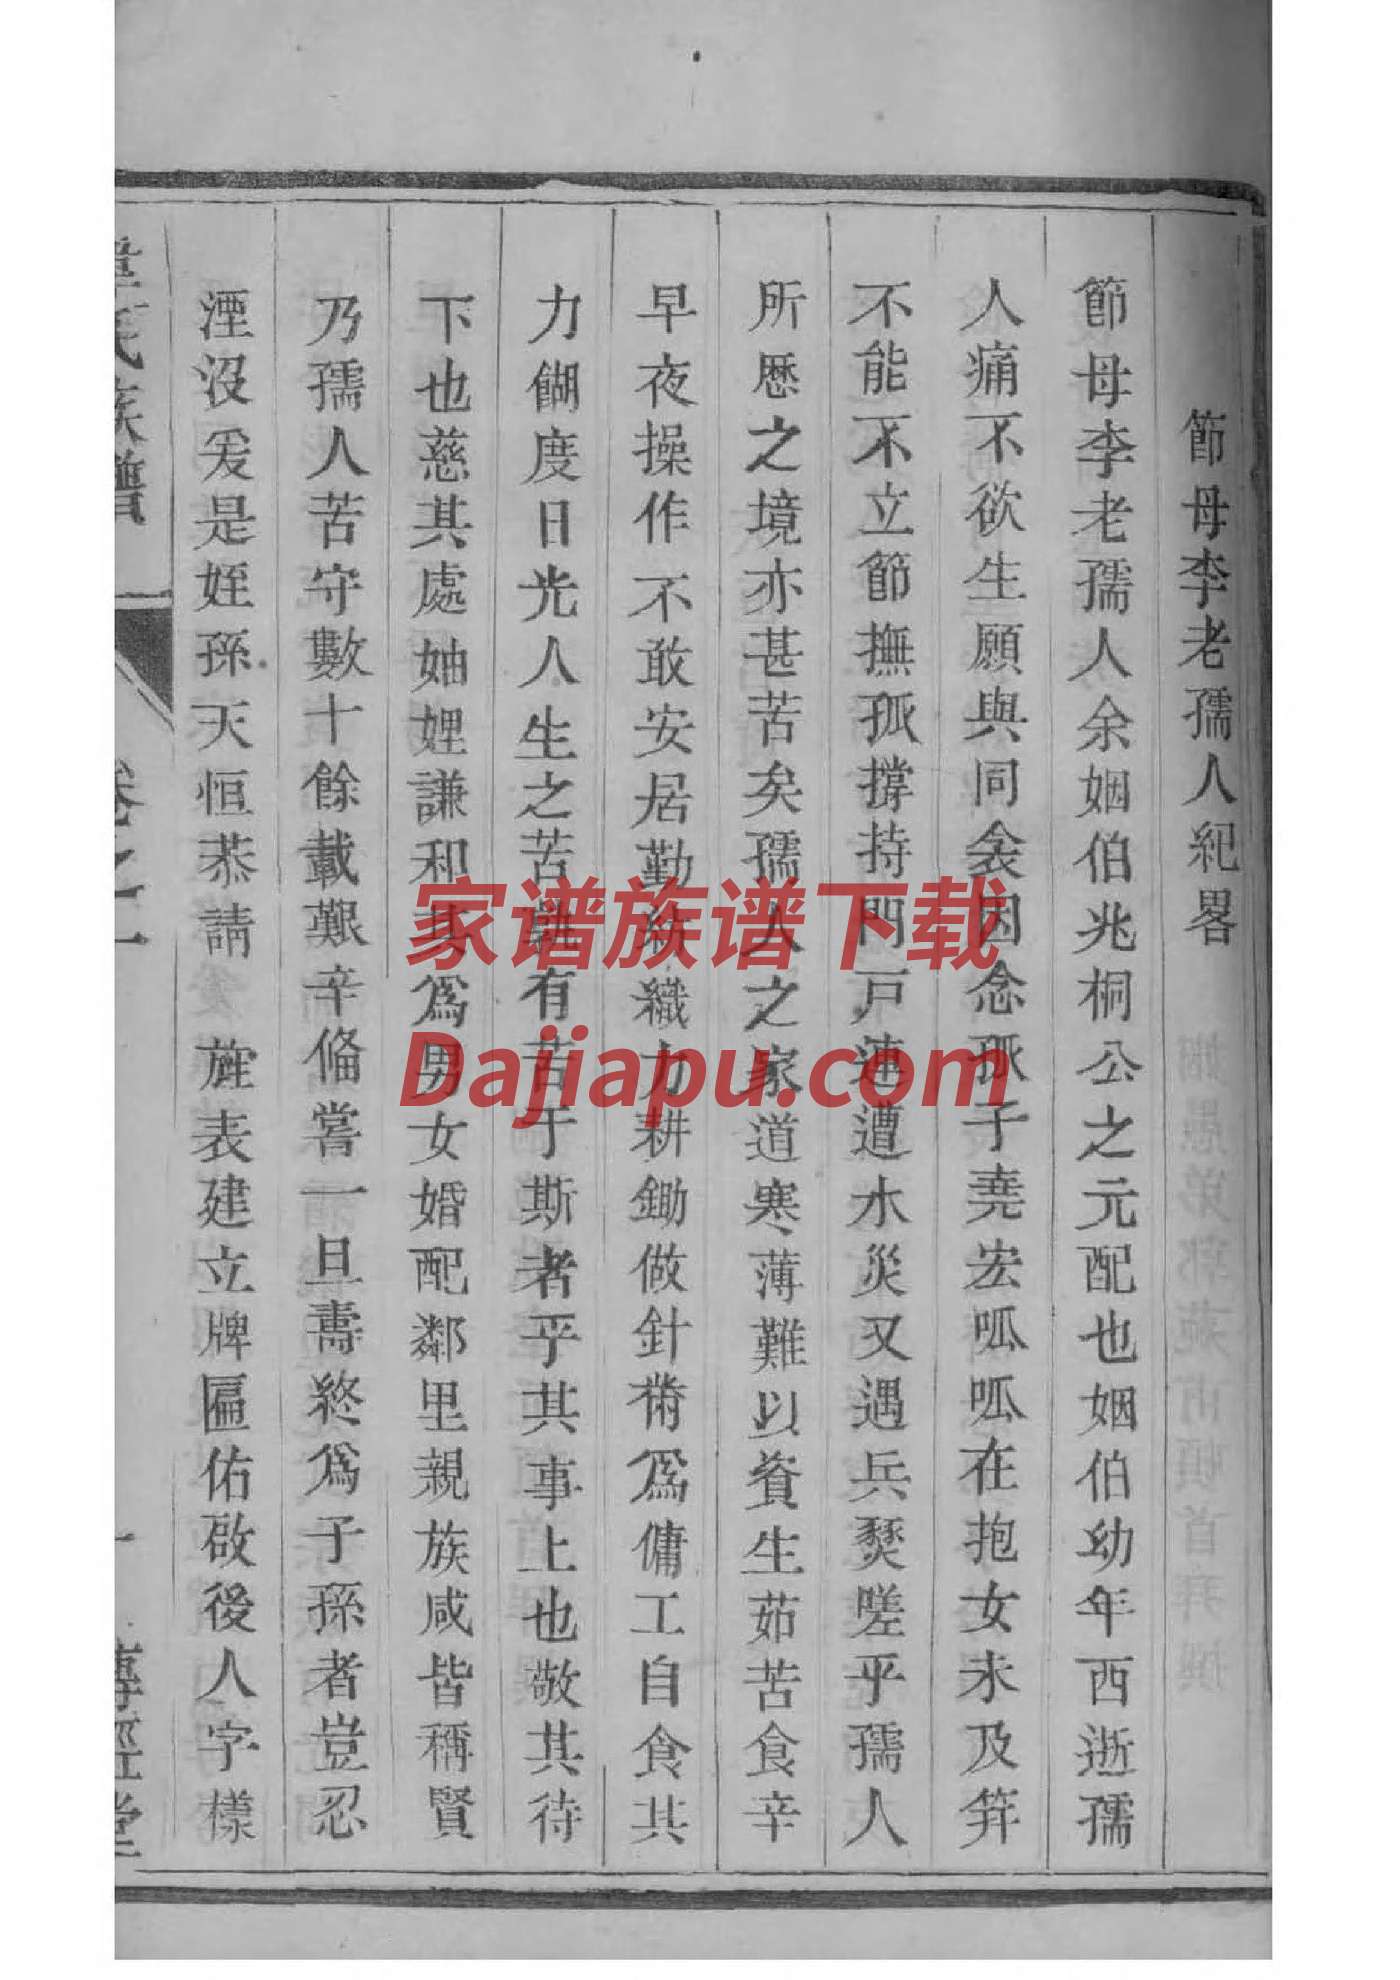 節母李老孺人紀畧
節母李老孺人余姻伯兆桐公之元配也姻伯幼年西逝孺
人痛不欲生願與同衾因念孤子堯宏呱呱在抱女未及笄
不能不立節撫孤撐持門戸連遭水災又遇兵燹嗟乎孺人
所歷之境亦甚苦矣孺人之家道寒薄難以資生茹苦食辛
早夜操作不敢安居勤紡織力耕鋤做針黹爲傭工自食其
力餬度日光人生之苦孰有苦于斯者乎其事上也敬其待
下也慈其處妯娌謙和其爲男女婚配鄰里親族咸皆稱賢
乃孺人苦守數十餘載艱辛俻嘗一旦壽終爲子孫者豈忍
湮沒爰是姪孫天恒恭請 旌表建立牌匾佑啟後人字樣
氏族譜
卷之二
一
傳經堂
家谱族谱下载
Dajiapu.com